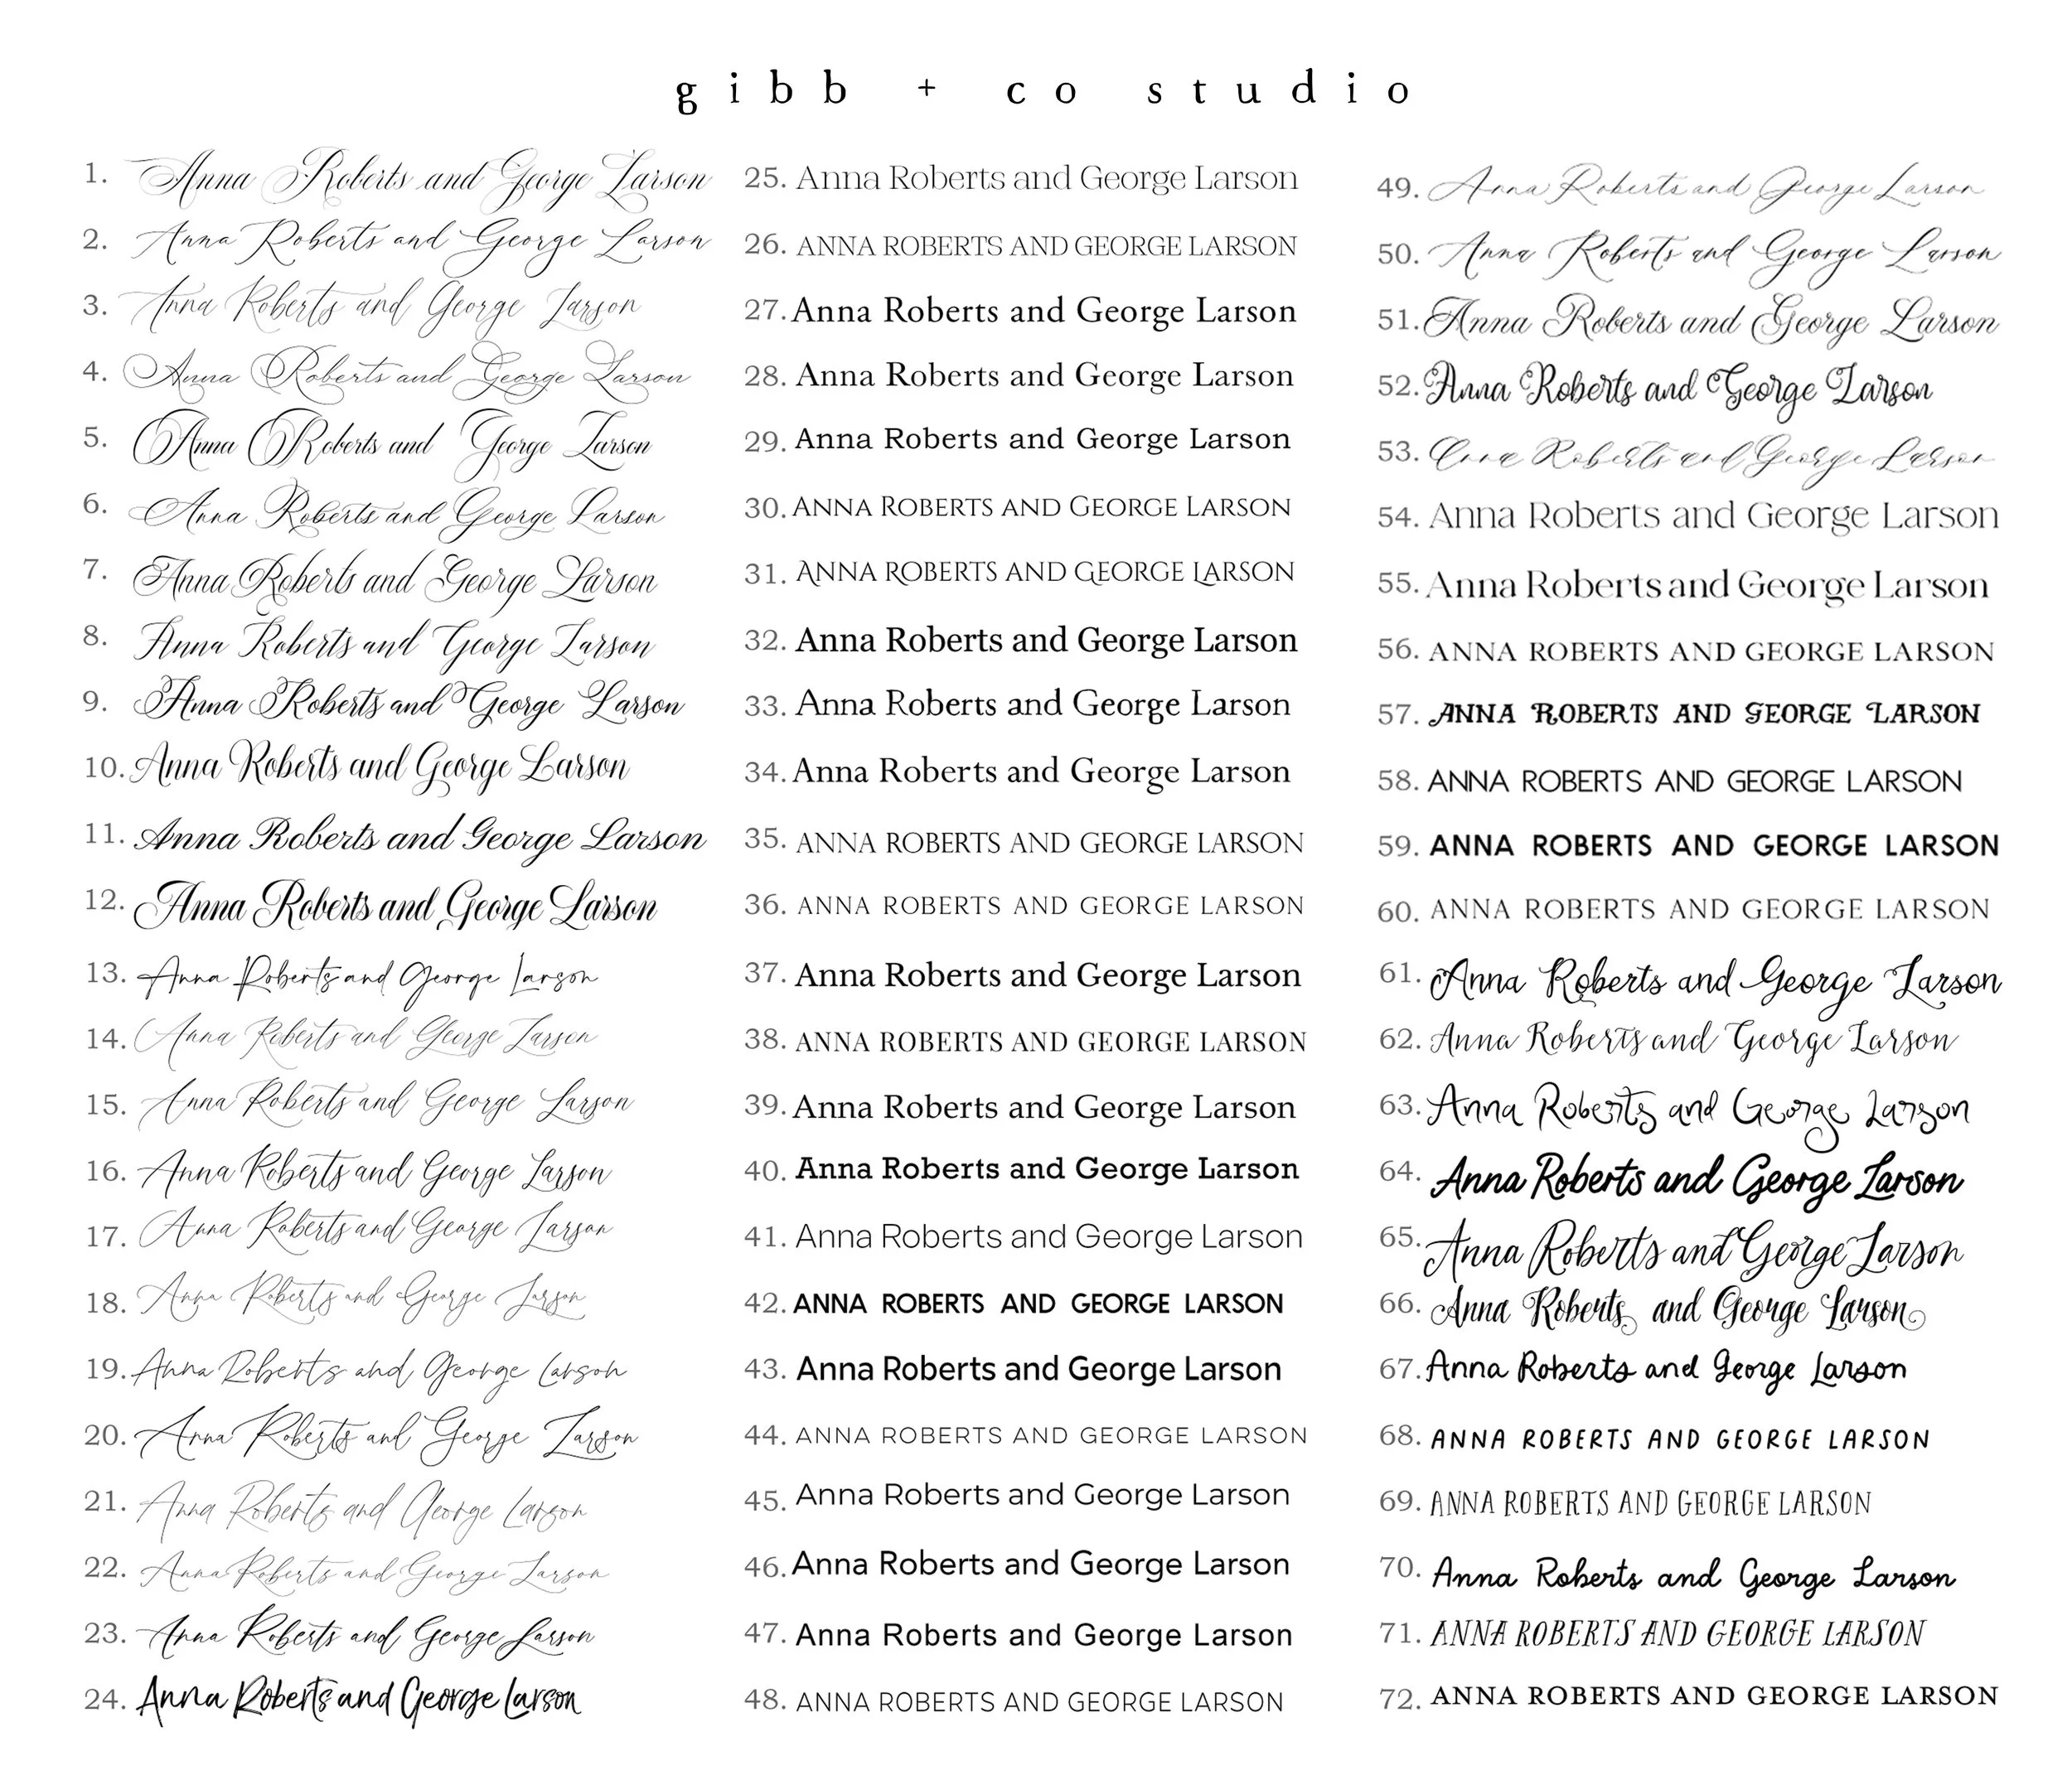 gibb + co studio
1. Anna Roberts and George Larson
2. Anna Roberts and George Larson
3. Anna Roberts and George Larson
4. Anna Roberts and George Larson
5. Anna Roberts and George Larson
6. Anna Roberts and George Larson
7. Anna Roberts and George Larson
8. Anna Roberts and George Larson
9. Anna Roberts and George Larson
10. Anna Roberts and George Larson
11. Anna Roberts and George Larson
12. Anna Roberts and George Larson
13. Anna Roberts and George Larson
14. Anna Roberts and George Larson
15. Anna Roberts and George Larson
16. Anna Roberts and George Larson
17. Anna Roberts and George Larson
18. Anna Roberts and George Larson
19. Anna Roberts and George Larson
20. Anna Roberts and George Larson
21. Anna Roberts and George Larson
22. Anna Roberts and George Larson
23. Anna Roberts and George Larson
24. Anna Roberts and George Larson
25. Anna Roberts and George Larson
26. ANNA ROBERTS AND GEORGE LARSON
27. Anna Roberts and George Larson
28. Anna Roberts and George Larson
29. Anna Roberts and George Larson
30. ANNA ROBERTS AND GEORGE LARSON
31. ANNA ROBERTS AND GEORGE LARSON
32. Anna Roberts and George Larson
33. Anna Roberts and George Larson
34. Anna Roberts and George Larson
35. ANNA ROBERTS AND GEORGE LARSON
36. ANNA ROBERTS AND GEORGE LARSON
37. Anna Roberts and George Larson
38. ANNA ROBERTS AND GEORGE LARSON
39. Anna Roberts and George Larson
40. Anna Roberts and George Larson
41. Anna Roberts and George Larson
42. ANNA ROBERTS AND GEORGE LARSON
43. Anna Roberts and George Larson
44. ANNA ROBERTS AND GEORGE LARSON
45. Anna Roberts and George Larson
46. Anna Roberts and George Larson
47. Anna Roberts and George Larson
48. ANNA ROBERTS AND GEORGE LARSON
49. Anna Roberts and George Larson
50. Anna Roberts and George Larson
51. Anna Roberts and George Larson
52. Anna Roberts and George Larson
53. Anna Roberts and George Larson
54. Anna Roberts and George Larson
55. Anna Roberts and George Larson
56. ANNA ROBERTS AND GEORGE LARSON
57. ANNA ROBERTS AND GEORGE LARSON
58. ANNA ROBERTS AND GEORGE LARSON
59. ANNA ROBERTS AND GEORGE LARSON
60. ANNA ROBERTS AND GEORGE LARSON
61. Anna Roberts and George Larson
62. Anna Roberts and George Larson
63. Anna Roberts and George Larson
64. Anna Roberts and George Larson
65. Anna Roberts and George Larson
66. Anna Roberts and George Larson
67. Anna Roberts and George Larson
68. ANNA ROBERTS AND GEORGE LARSON
69. ANNA ROBERTS AND GEORGE LARSON
70. Anna Roberts and George Larson
71. ANNA ROBERTS AND GEORGE LARSON
72. ANNA ROBERTS AND GEORGE LARSON